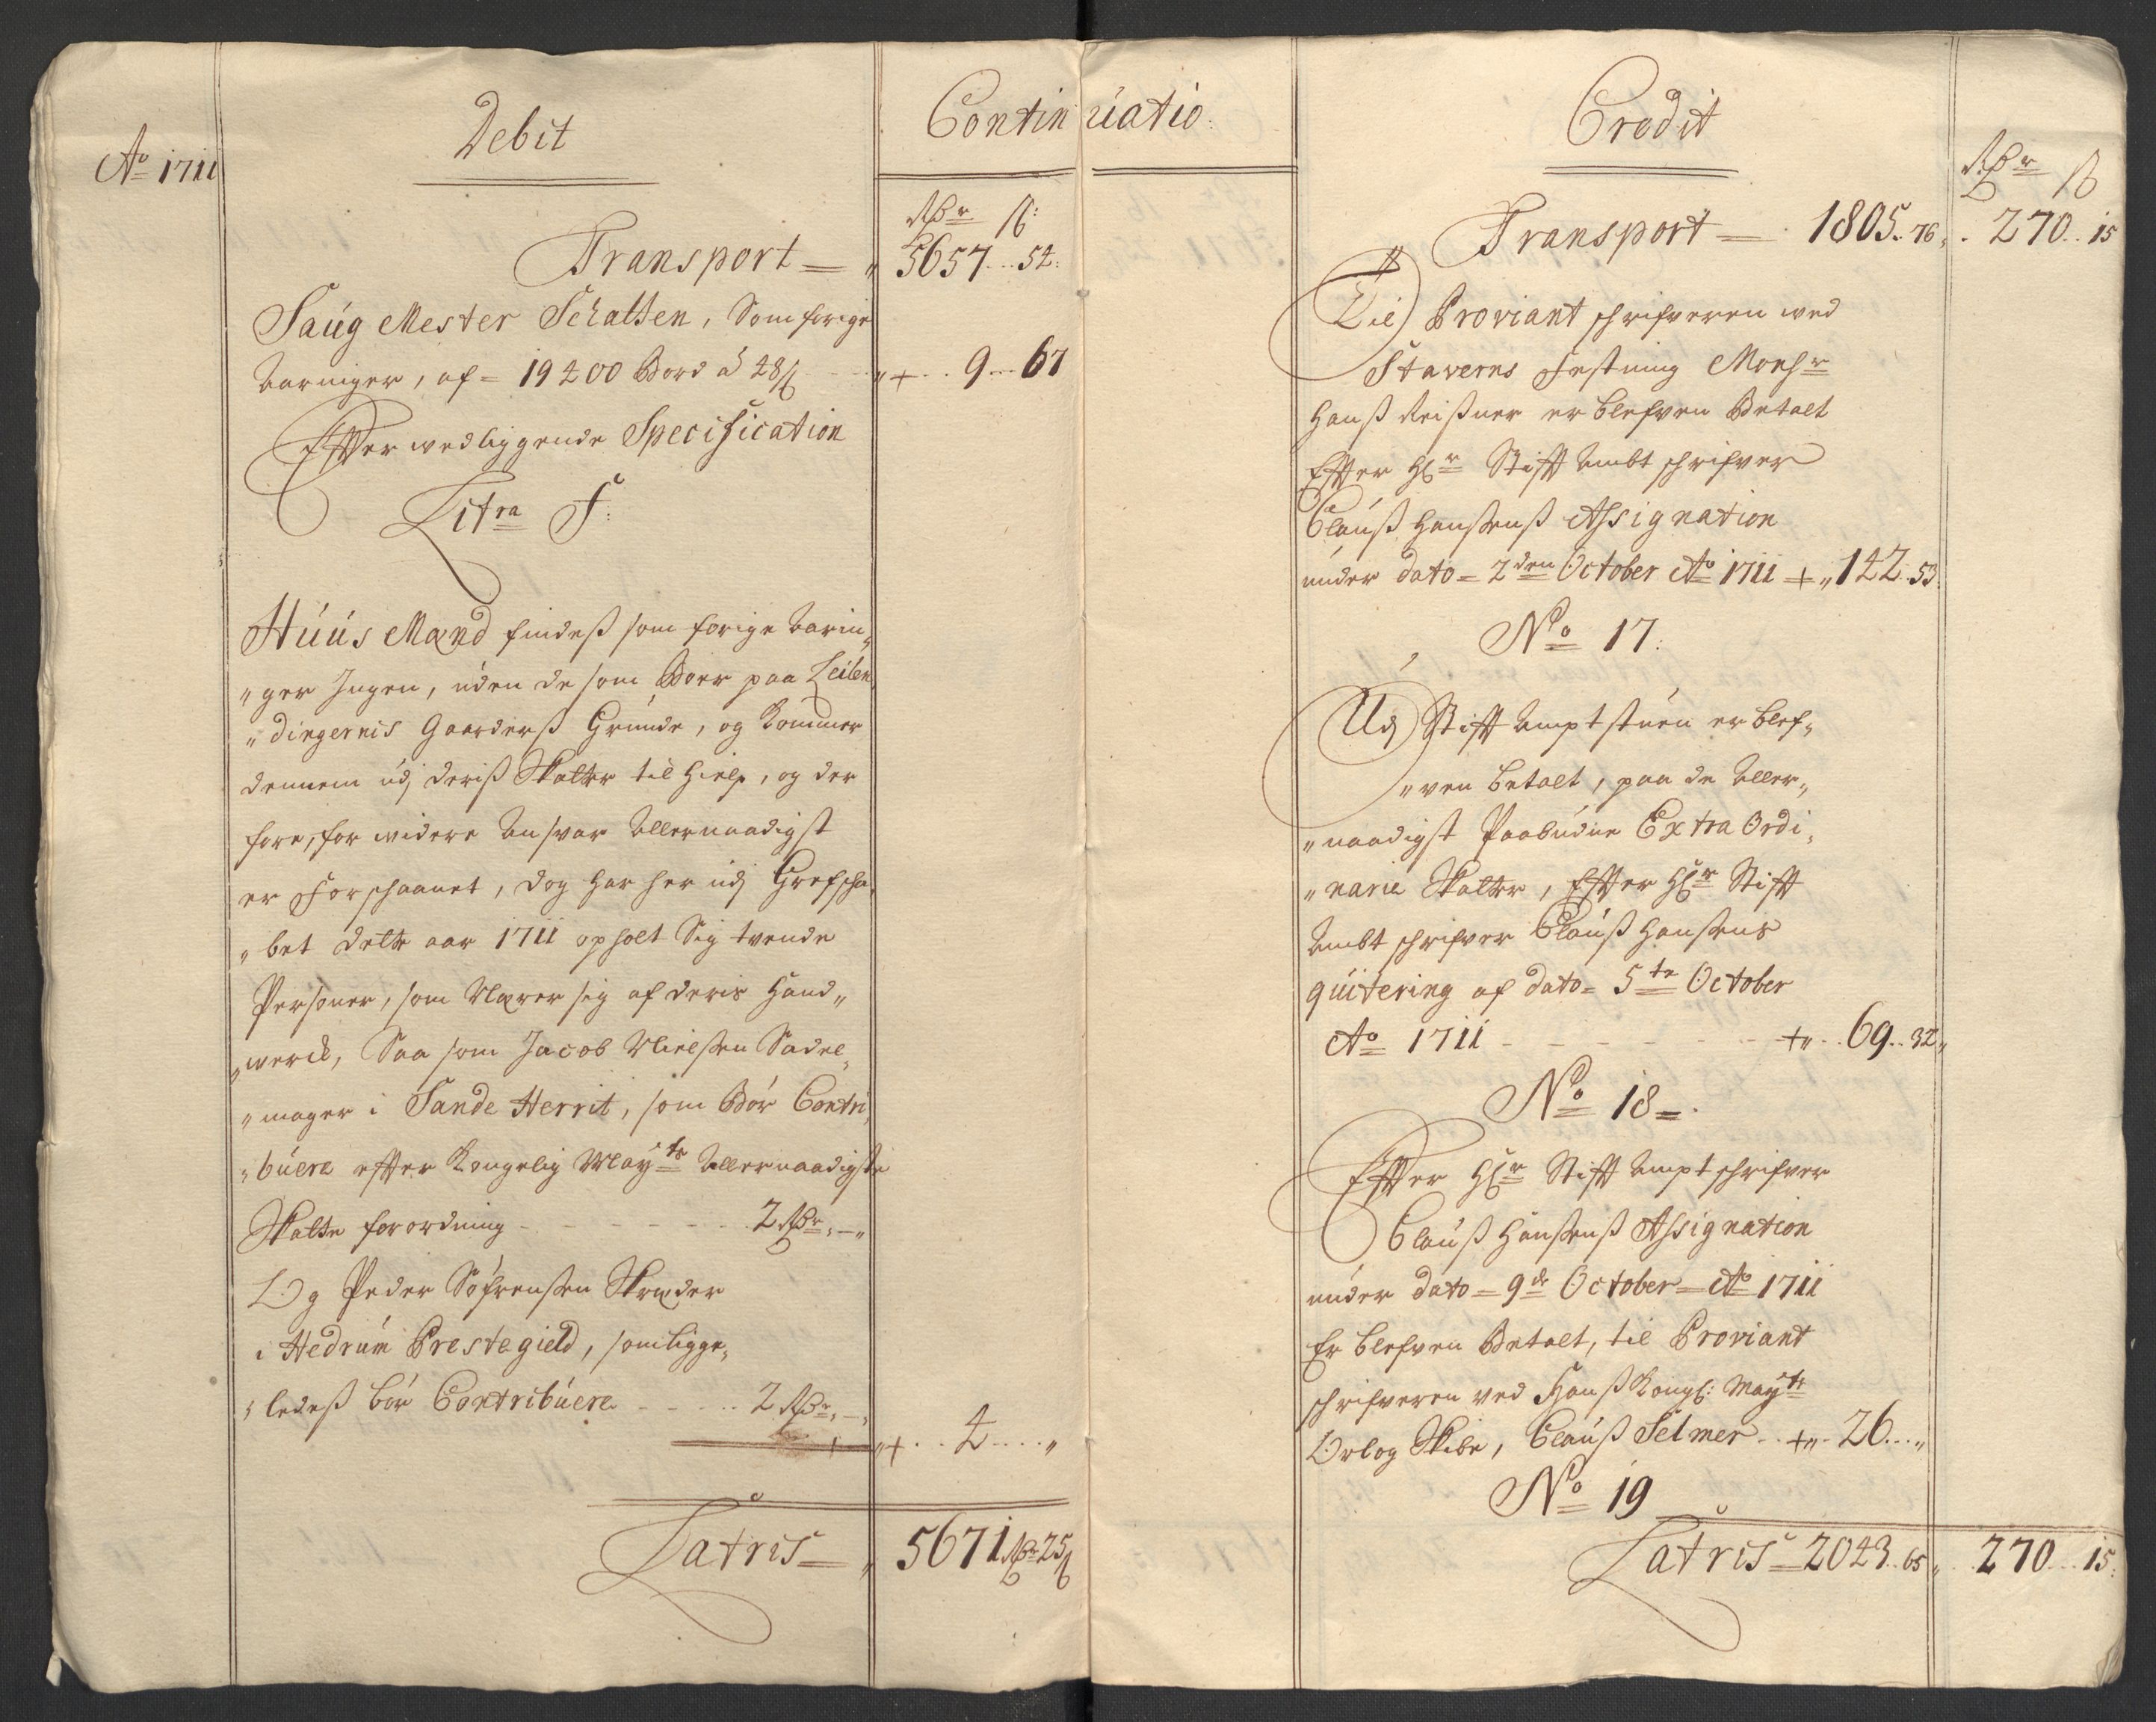 Ao 1711
Debit
Continuatio:
Rdr ß:
Transport = 5657 .. 54:
Saug Mester Schatten, Som forige
Tarniger, af = 19400 Bord á 48ß - - - + .. 9 .. 67
Effter wedliggende Specification
Litra F:
Huus Mænd findes som forige
ger Ingen, uden de som Boer paa Leilen„
„dingernis Gaarders Grunde, og kommer
dennem udj deris Skatter til Hielp, og der
fore, for widere Answar Allernaadigst
er Forschaanet, dog har her udj Grefscha„
„bet dette aar 1711 opholt Sig tvende
Personer, som Nærer sig af deris Hand„
„werck, Saa som Jacob Nielssen Sadel„
„mager i Sande Herrit, som Bör Contri„
„buere effter Kongelig Mayts Allernaadigste
Skatte forordning - - - - - 2 Rdr„ - „
Og Peder Söfrenssen Skræder
i Hedrum Prestegield, som ligge„
„ledeß bör Contribuere - - - 2 Rdr„ - „
+ .. 4 .... „
Latris = 5671 Rdr 25 ß
Credit
Rdr ß
Transport = 1805.. 76„ . 270.. 15
Til Proviant schrifveren wed
Staverns Festning Monsr
Hanß Reißner er blefven Betalt
Effter Hr Stifft Ambt schrifver
Clauß Hanßenß Assignation
under dato = 2den October Ao 1711 + „ 142.. 53„
No 17:
Udj Stifft Ampt stuen er blef„
„ven betalt, paa de Aller„
„naadigst Paabudne Extra Ordi„
„narie Skatter, Effter Hr Stifft
Ambt schrifver Clauß Hanßens
quitering af dato = 5te October
Ao 1711 - - - - - - + „ .. 69.. 32„
No 18 = .
Effter Hr Stifft Ampt schrifver
Clauß Hanßenß Assignation
under dato = 9de October = Ao 1711
Er blefven Betalt, til Proviant
schrifveren ved Hanß Kongl: Mayts
Orlog Skibe, Clauß Selmer .. + „ .. 26 ... „
No 19
Latris = 2043.. 65„ . 270... 15: